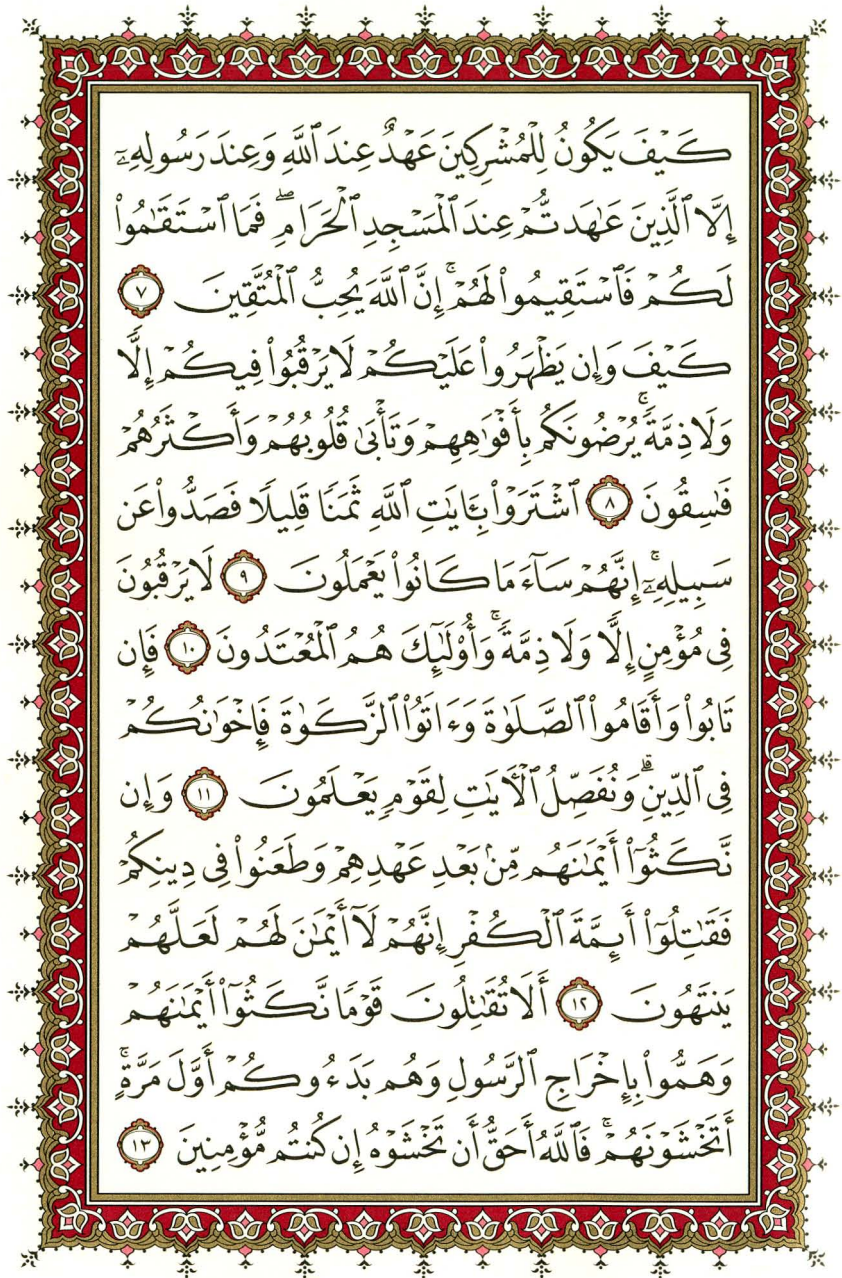 كَيْفَ يَكُونُ لِلْمُشْرِكِينَ عَهْدٌ عِندَ ٱللَّهِ وَعِندَ رَسُولِهِۦٓ
إِلَّا ٱلَّذِينَ عَـٰهَدتُّمْ عِندَ ٱلْمَسْجِدِ ٱلْحَرَامِ ۖ فَمَا ٱسْتَقَـٰمُوا۟
لَكُمْ فَٱسْتَقِيمُوا۟ لَهُمْ ۚ إِنَّ ٱللَّهَ يُحِبُّ ٱلْمُتَّقِينَ ٧
كَيْفَ وَإِن يَظْهَرُوا۟ عَلَيْكُمْ لَا يَرْقُبُوا۟ فِيكُمْ إِلًّا
وَلَا ذِمَّةً ۚ يُرْضُونَكُم بِأَفْوَٰهِهِمْ وَتَأْبَىٰ قُلُوبُهُمْ وَأَكْثَرُهُمْ
فَـٰسِقُونَ ٨ ٱشْتَرَوْا۟ بِـَٔايَـٰتِ ٱللَّهِ ثَمَنًا قَلِيلًا فَصَدُّوا۟ عَن
سَبِيلِهِۦٓ ۚ إِنَّهُمْ سَآءَ مَا كَانُوا۟ يَعْمَلُونَ ٩ لَا يَرْقُبُونَ
فِى مُؤْمِنٍ إِلًّا وَلَا ذِمَّةً ۚ وَأُو۟لَـٰٓئِكَ هُمُ ٱلْمُعْتَدُونَ ١٠ فَإِن
تَابُوا۟ وَأَقَامُوا۟ ٱلصَّلَوٰةَ وَءَاتَوُا۟ ٱلزَّكَوٰةَ فَإِخْوَٰنُكُمْ
فِى ٱلدِّينِ ۗ وَنُفَصِّلُ ٱلْـَٔايَـٰتِ لِقَوْمٍ يَعْلَمُونَ ١١ وَإِن
نَّكَثُوٓا۟ أَيْمَـٰنَهُم مِّنۢ بَعْدِ عَهْدِهِمْ وَطَعَنُوا۟ فِى دِينِكُمْ
فَقَـٰتِلُوٓا۟ أَئِمَّةَ ٱلْكُفْرِ إِنَّهُمْ لَآ أَيْمَـٰنَ لَهُمْ لَعَلَّهُمْ
يَنتَهُونَ ١٢ أَلَا تُقَـٰتِلُونَ قَوْمًا نَّكَثُوٓا۟ أَيْمَـٰنَهُمْ
وَهَمُّوا۟ بِإِخْرَاجِ ٱلرَّسُولِ وَهُم بَدَءُوكُمْ أَوَّلَ مَرَّةٍ ۚ
أَتَخْشَوْنَهُمْ ۚ فَٱللَّهُ أَحَقُّ أَن تَخْشَوْهُ إِن كُنتُم مُّؤْمِنِينَ ١٣